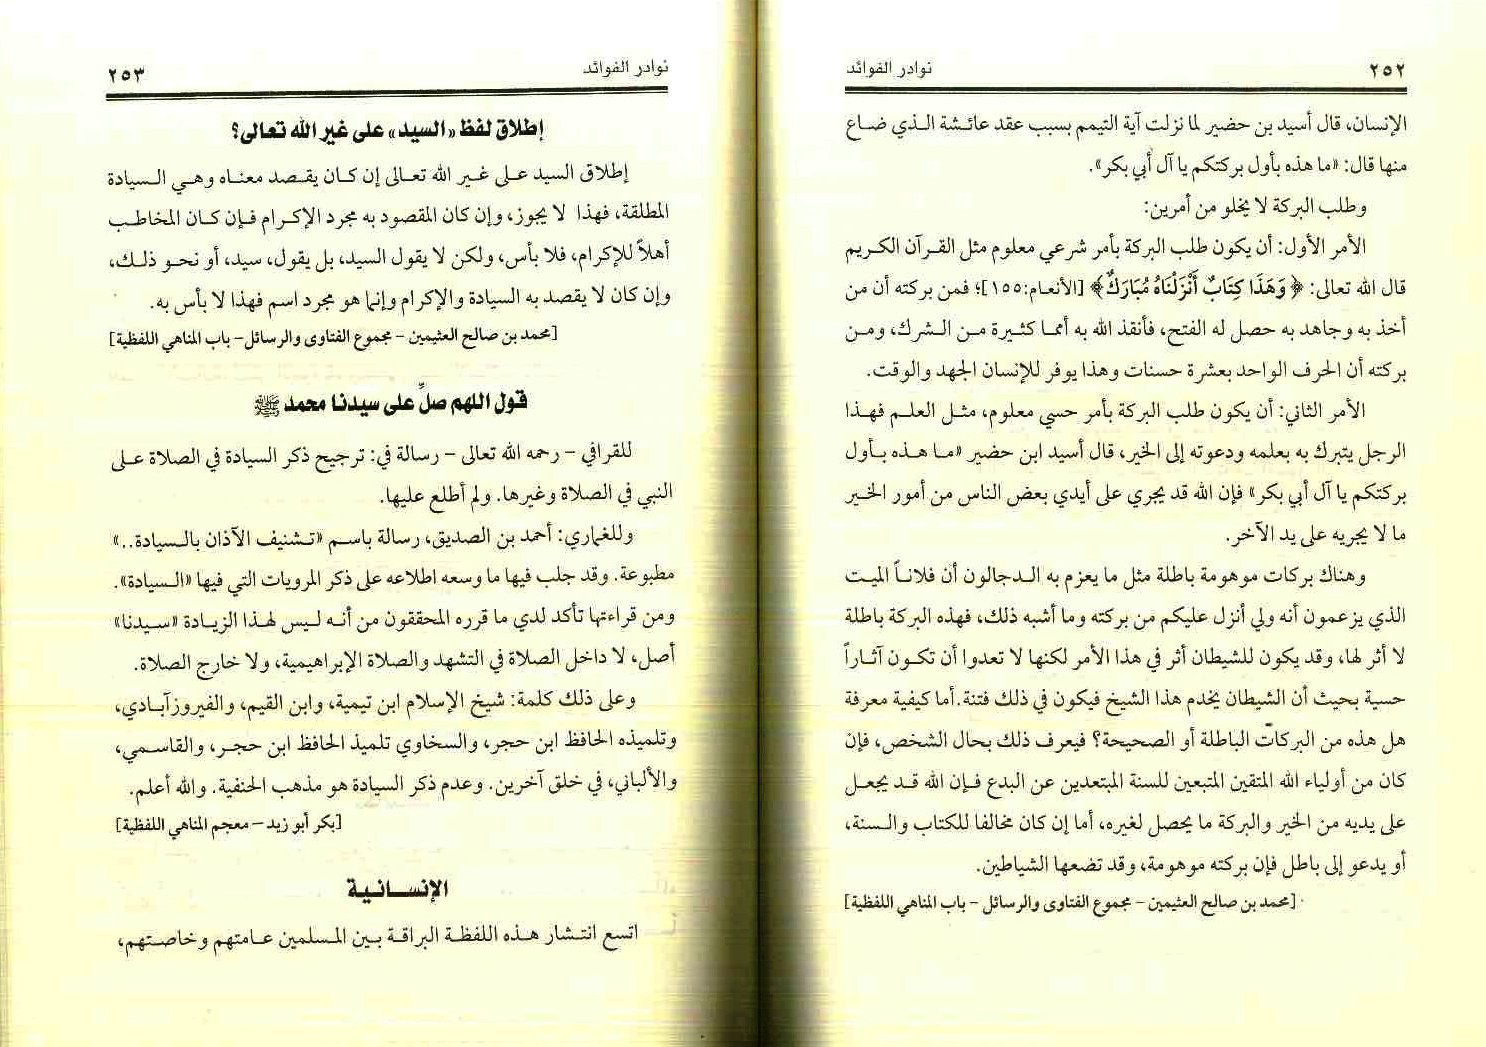 ٢٥٢ نوادر الفوائد
الإنسان، قال أسيد بن حضير لما نزلت آية التيمم بسبب عقد عائشة الذي ضاع
منها قال: «ما هذه بأول بركتكم يا آل أبي بكر».
وطلب البركة لا يخلو من أمرين:
الأمر الأول: أن يكون طلب البركة بأمر شرعي معلوم مثل القرآن الكريم
قال الله تعالى: ﴿وَهَذَا كِتَابٌ أَنْزَلْنَاهُ مُبَارَكٌ﴾ [الأنعام:١٥٥]؛ فمن بركته أن من
أخذ به وجاهد به حصل له الفتح، فأنقذ الله به أمما كثيرة من الشرك، ومن
بركته أن الحرف الواحد بعشرة حسنات وهذا يوفر للإنسان الجهد والوقت.
الأمر الثاني: أن يكون طلب البركة بأمر حسي معلوم، مثل العلم فهذا
الرجل يتبرك به بعلمه ودعوته إلى الخير، قال أسيد ابن حضير «ما هذه بأول
بركتكم يا آل أبي بكر» فإن الله قد يجري على أيدي بعض الناس من أمور الخير
ما لا يجريه على يد الآخر.
وهناك بركات موهومة باطلة مثل ما يعزم به الدجالون أن فلاناً الميت
الذي يزعمون أنه ولي أنزل عليكم من بركته وما أشبه ذلك، فهذه البركة باطلة
لا أثر لها، وقد يكون للشيطان أثر في هذا الأمر لكنها لا تعدوا أن تكون آثاراً
حسية بحيث أن الشيطان يخدم هذا الشيخ فيكون في ذلك فتنة. أما كيفية معرفة
هل هذه من البركات الباطلة أو الصحيحة؟ فيعرف ذلك بحال الشخص، فإن
كان من أولياء الله المتقين المتبعين للسنة المبتعدين عن البدع فإن الله قد يجعل
على يديه من الخير والبركة ما يحصل لغيره، أما إن كان مخالفا للكتاب والسنة،
أو يدعو إلى باطل فإن بركته موهومة، وقد تضعها الشياطين.
[محمد بن صالح العثيمين - مجموع الفتاوى والرسائل - باب المناهي اللفظية]
نوادر الفوائد ٢٥٣
إطلاق لفظ «السيد» على غير الله تعالى؟
إطلاق السيد على غير الله تعالى إن كان يقصد معناه وهي السيادة
المطلقة، فهذا لا يجوز، وإن كان المقصود به مجرد الإكرام فإن كان المخاطب
أهلاً للإكرام، فلا بأس، ولكن لا يقول السيد، بل يقول، سيد، أو نحو ذلك،
وإن كان لا يقصد به السيادة والإكرام وإنما هو مجرد اسم فهذا لا بأس به.
[محمد بن صالح العثيمين - مجموع الفتاوى والرسائل- باب المناهي اللفظية]
قول اللهم صلِّ على سيدنا محمد ﷺ
للقرافي - رحمه الله تعالى - رسالة في: ترجيح ذكر السيادة في الصلاة على
النبي في الصلاة وغيرها. ولم أطلع عليها.
وللغماري: أحمد بن الصديق، رسالة باسم «تشنيف الآذان بالسيادة..»
مطبوعة. وقد جلب فيها ما وسعه اطلاعه على ذكر المرويات التي فيها «السيادة».
ومن قراءتها تأكد لدي ما قرره المحققون من أنه ليس لهذا الزيادة «سيدنا»
أصل، لا داخل الصلاة في التشهد والصلاة الإبراهيمية، ولا خارج الصلاة.
وعلى ذلك كلمة: شيخ الإسلام ابن تيمية، وابن القيم، والفيروزآبادي،
وتلميذه الحافظ ابن حجر، والسخاوي تلميذ الحافظ ابن حجر، والقاسمي،
والألباني، في خلق آخرين. وعدم ذكر السيادة هو مذهب الحنفية. والله أعلم.
[بكر أبو زيد - معجم المناهي اللفظية]
الإنسانية
اتسع انتشار هذه اللفظة البراقة بين المسلمين عامتهم وخاصتهم،